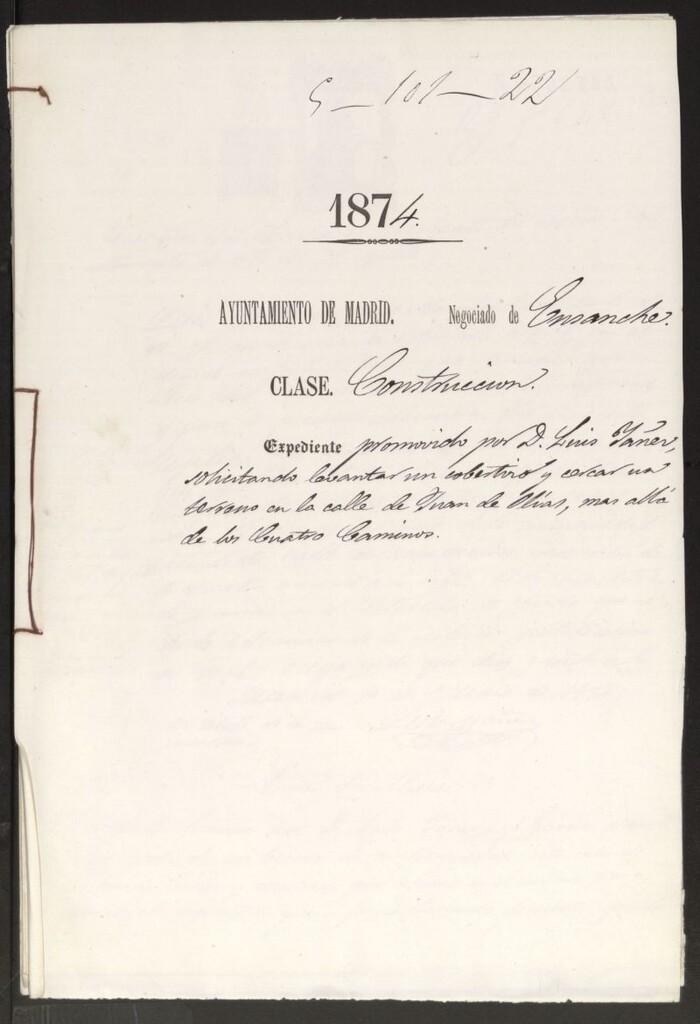 5 - 101 - 22
1874.
AYUNTAMIENTO DE MADRID. Negociado de Ensanche.
CLASE. Construccion.
Expediente promovido por D. Luis Yañez,
solicitando levantar un cobertizo y cercar un
terreno en la calle de Juan de Olías, mas allá
de los Cuatro Caminos.